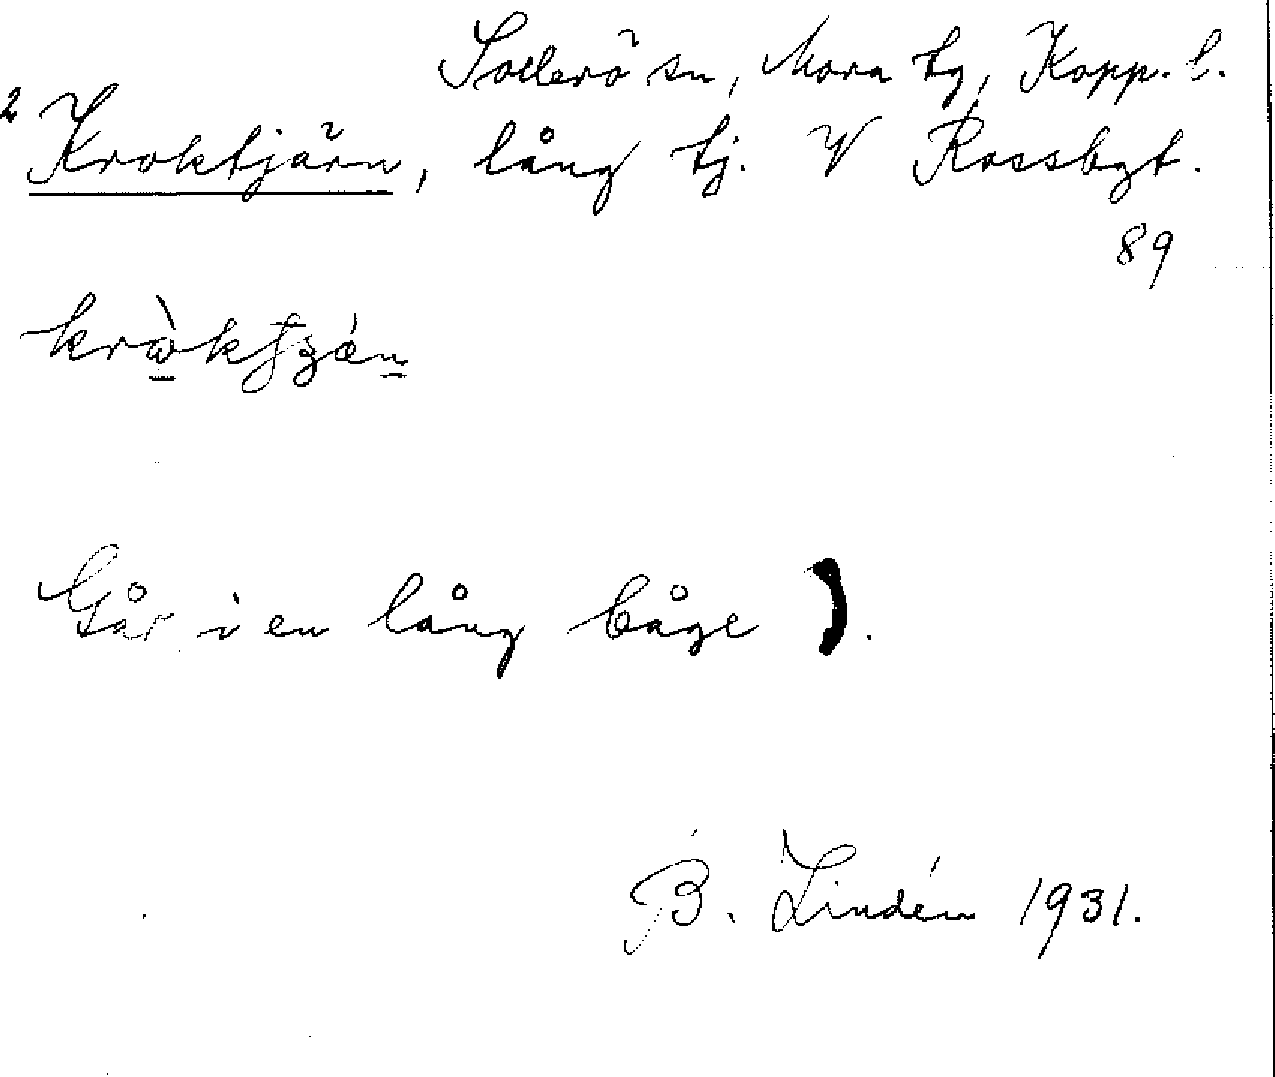 Sollerö sn, Mora tg, Kopp. l.
2 Kroktjärn, lång tj. V Rossbgt.
89
Går i en lång båge ).
B. Lindén 1931.